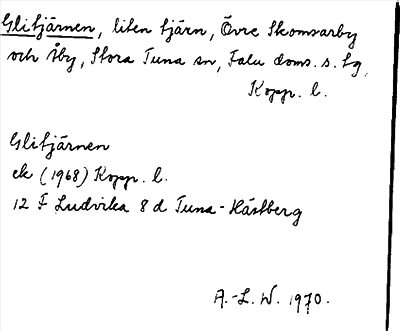 Glitjärnen, liten tjärn, Övre Skomsarby
och Åby, Stora Tuna sn, Falu doms. s. tg,
Kopp. l.
Glitjärnen
ek (1968) Kopp. l.
12 F Ludvika 8 d Tuna-Hästberg
A.-L. W. 1970.